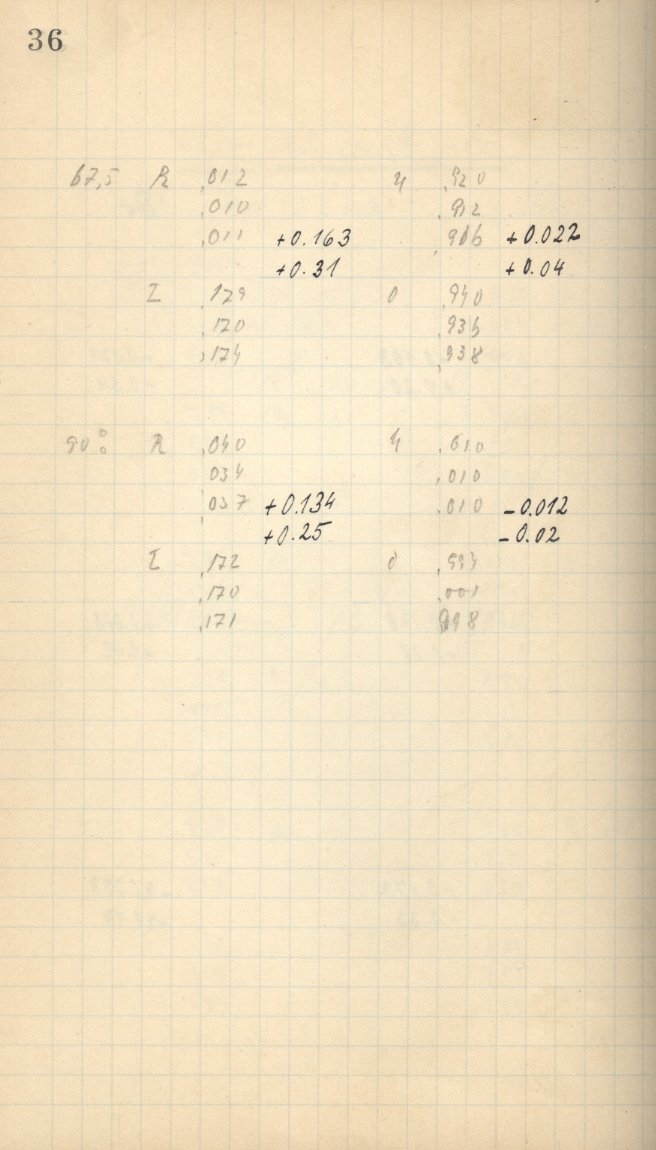 36
67,5 R ,012 U ,920
,010 ,912
,011 +0.163 ,916 +0.022
+0.31 +0.04
I ,179 O ,940
,170 ,936
,174 ,938
90° R ,040 U ,010
034 ,010
,037 +0.134 ,010 -0.012
+0.25 -0.02
I ,172 O
,170 ,001
,171 998